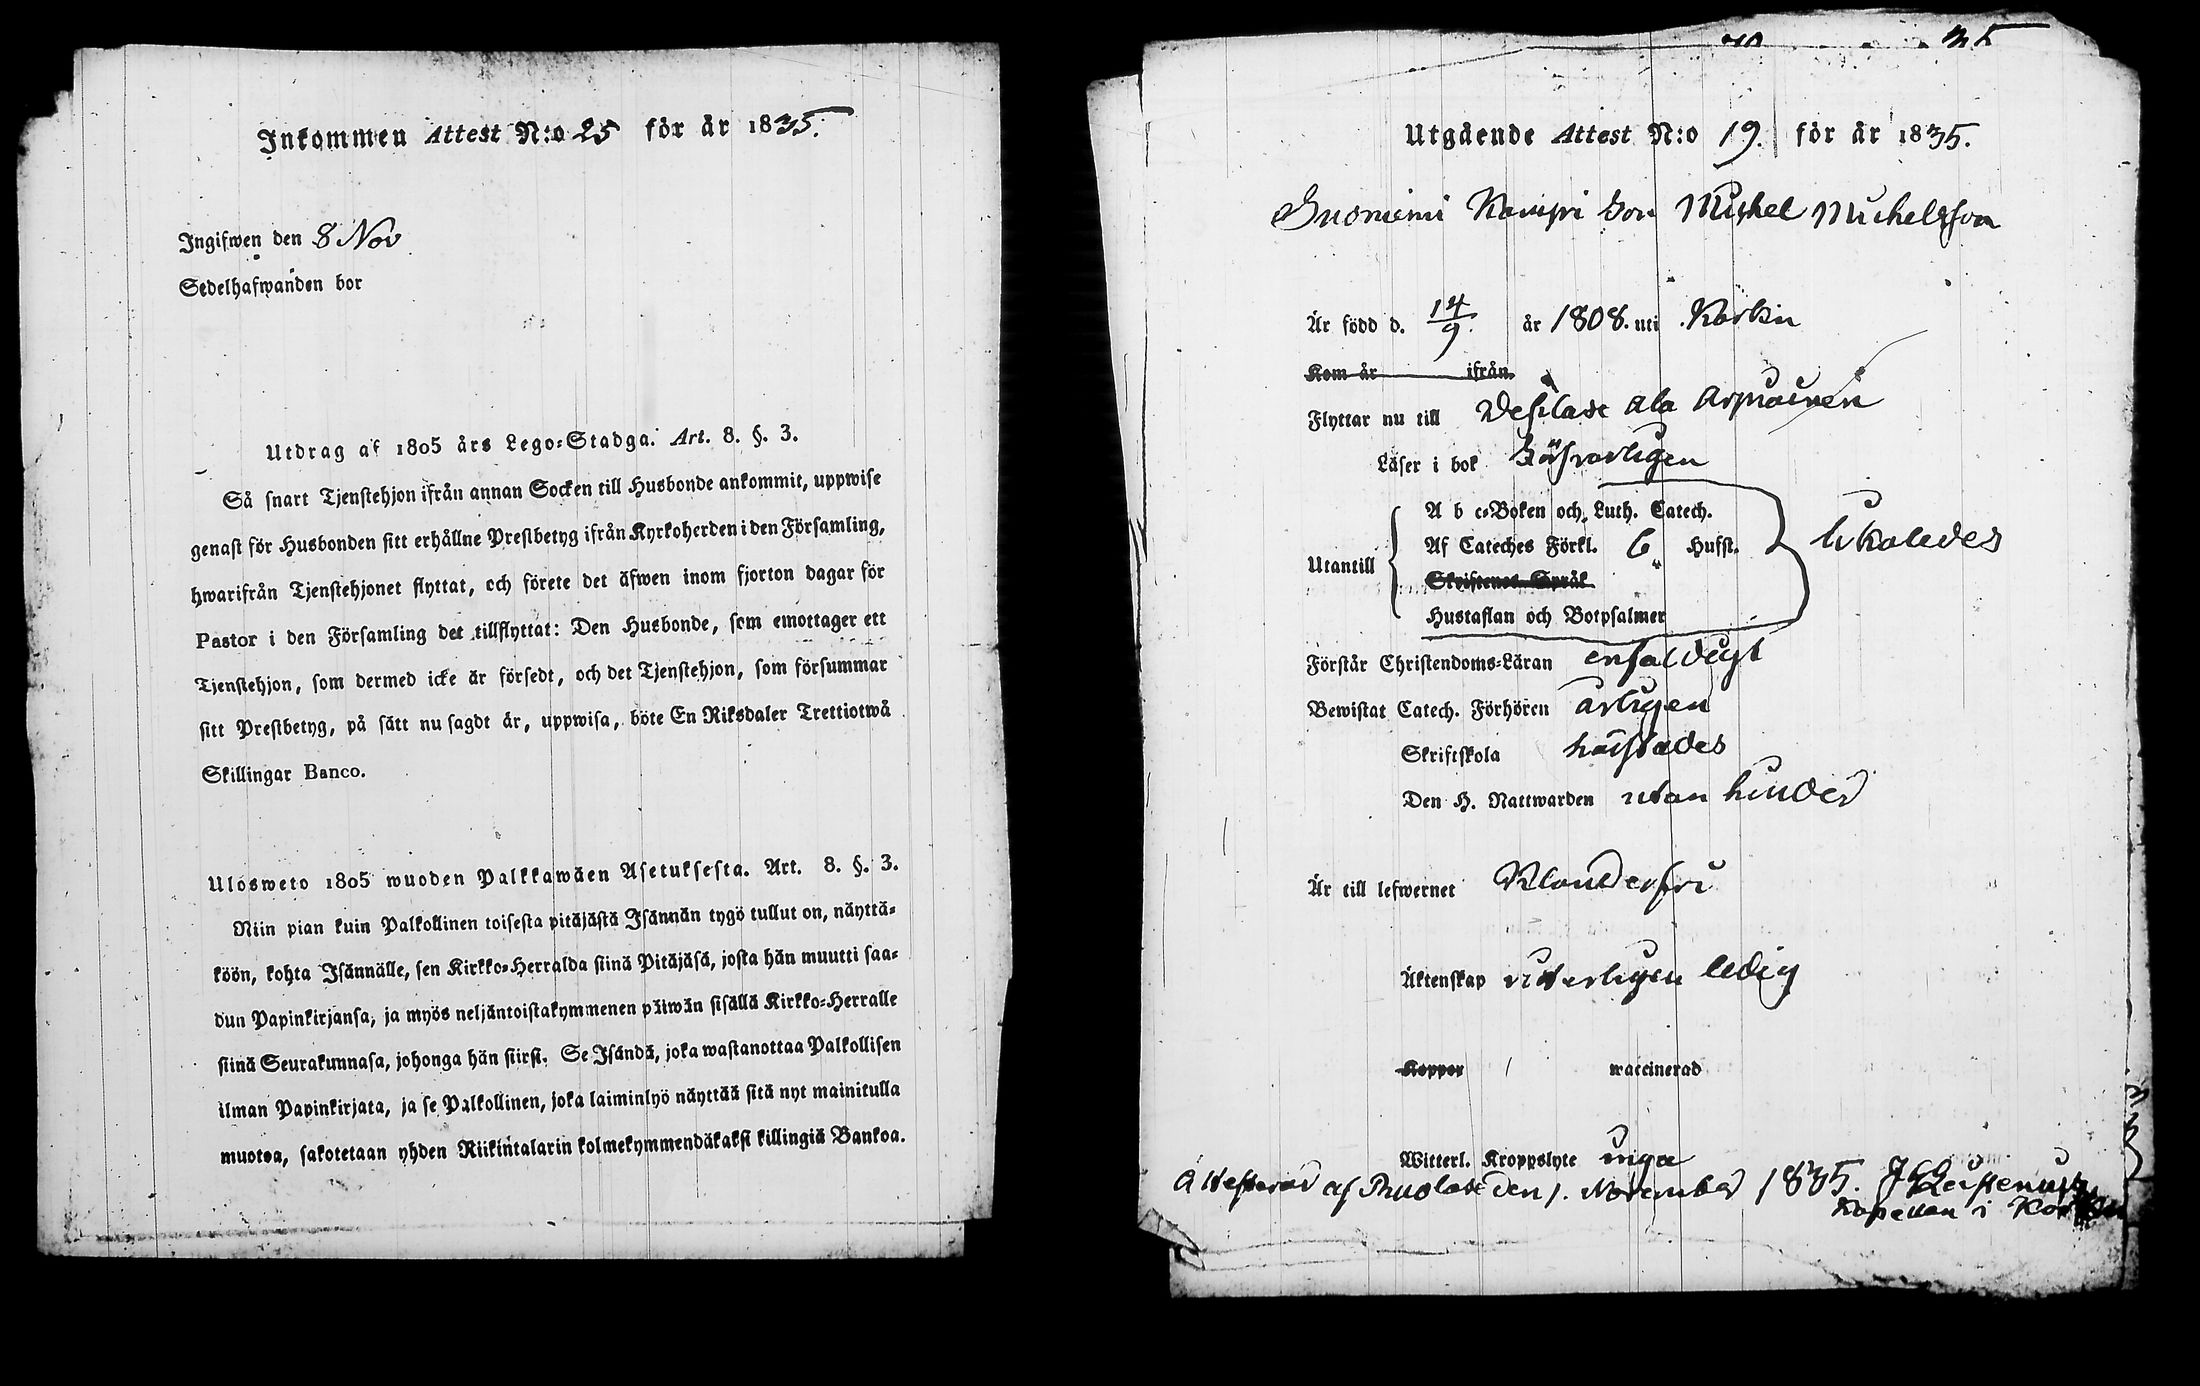 Inkommen Attest N:o 25 för år 1835.
Ingifwen den 8 Nov
Sedelhafwanden bor
Utdrag af 1805 års Lego-Stadga. Art. 8. §. 3.
Så snart Tjenstehjon ifrån annan Socken till Husbonde ankommit, uppwise
genast för Husbonden sitt erhållne Prestbetyg ifrån Kyrkoherden i den Församling,
hwarifrån Tjenstehjonet flyttat, och förete det äfwen inom fjorton dagar för
Pastor i den Församling det tillflyttat: Den Husbonde, som emottager ett
Tjenstehjon, som dermed icke är försedt, och det Tjenstehjon, som försummar
sitt Prestbetyg, på sätt nu sagdt är, uppwisa, böte En Riksdaler Trettiotwå
Skillingar Banco.
Ulosweto 1805 wuoden Palkkawäen Asetuksesta. Art. 8. §. 3.
Niin pian kuin Palkollinen toisesta pitäjästä Isännän tygö tullut on, näyttä-
köön, kohta Isännälle, sen Kirkko-Herralda siinä Pitäjäsä, josta hän muutti saa-
dun Papinkirjansa, ja myös neljäntoistakymmenen päiwän sisällä Kirkko-Herralle
siinä Seurakunnasa, johonga hän siirsi. Se Isändä, joka wastanottaa Palkollisen
ilman Papinkirjata, ja se Palkollinen, joka laiminlyö näyttää sitä nyt mainitulla
muotoa, sakotetaan yhden Riikintalarin kolmekymmendäkaksi killingiä Bankoa.
Utgående Attest N:o 19. för år 1835.
Suoniemi Kaupi Son Michel Michelsson
Är född d. 14/9 år 1808. uti Karkku
Kom år ifrån
Flyttar nu till Wesilax Ala Arpiainen
Läser i bok
A b c-Boken och Luth. Catech.
Utantill Af Cateches Förkl. 6 Hufst. likaledes
Skriftenes Språk
Hustaflan och Botpsalmer
Förstår Christendoms-Läran enfaldigt
Bewistat Catech. Förhören årligen
Skriftskola likaledes
Den H. Nattwarden utan hinder
Är till lefwernet Klanderfri
Äktenskap witterligen ledig
Koppor waccinerad
Witterl. Kroppslyte inga
Attesterar af den 1. November 1835.
Kapellan i Karkku